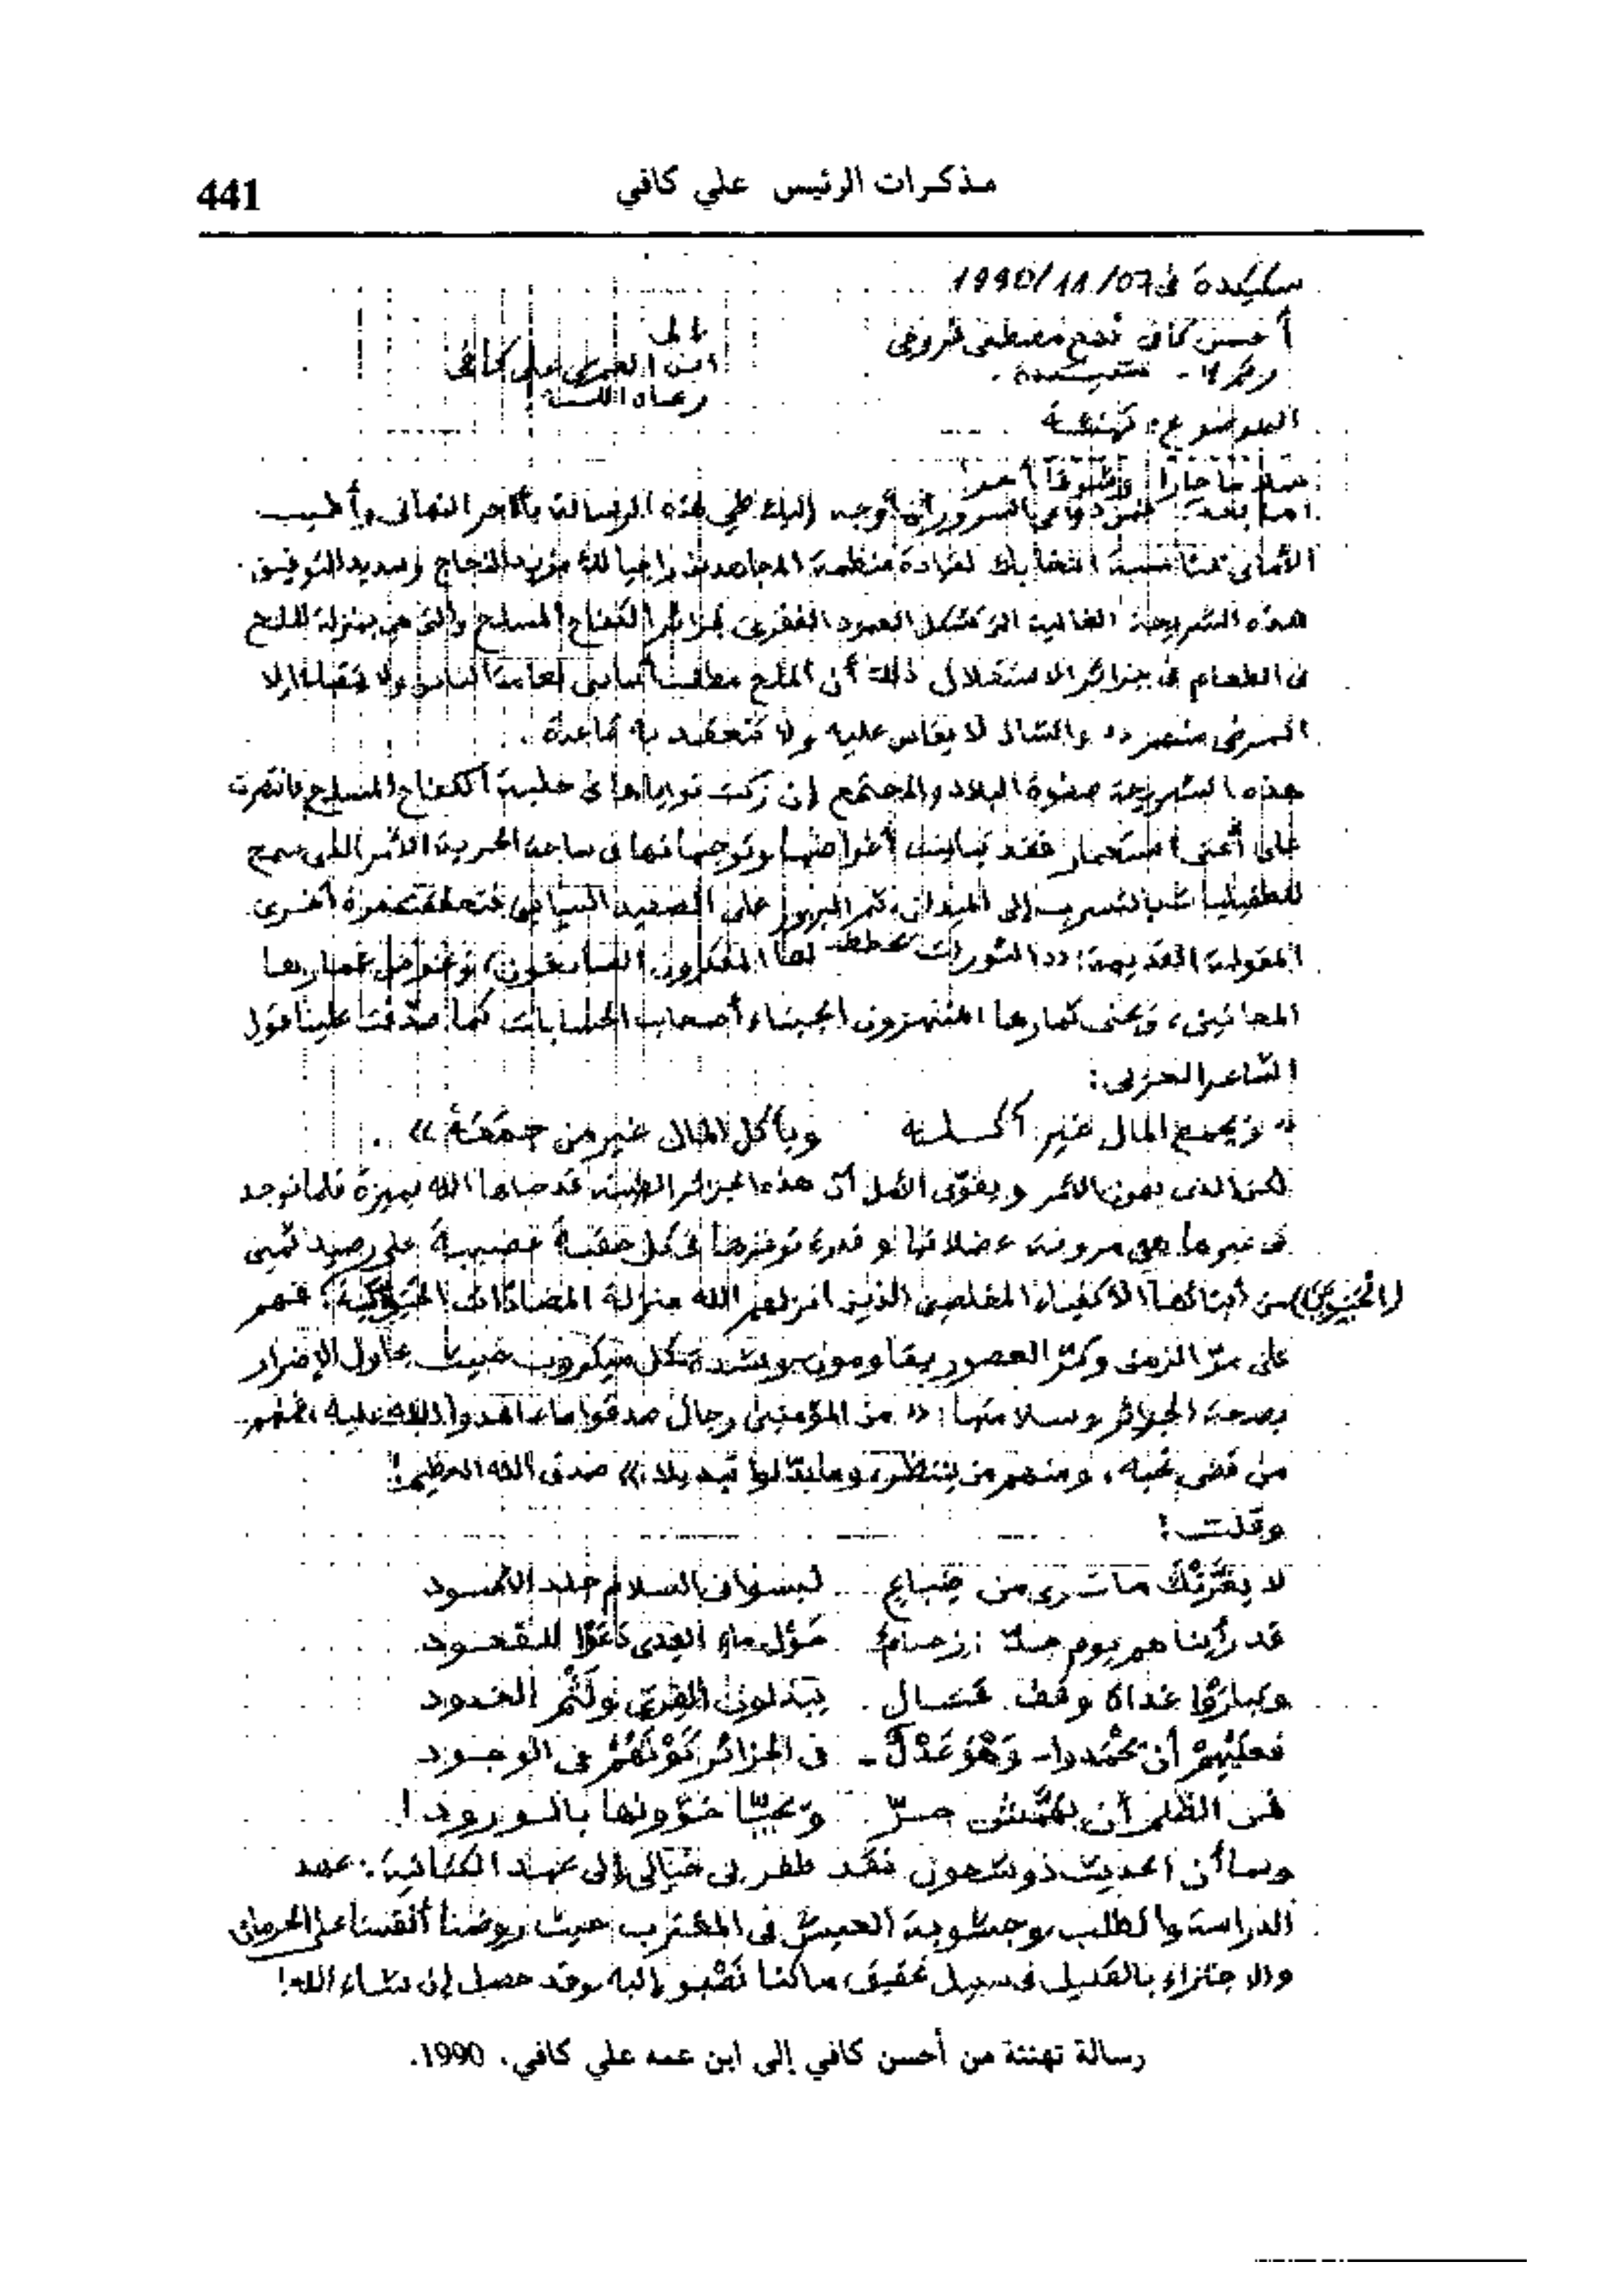 مذكرات الرئيس علي كافي
441
سكيكدة في 07/11/1990
أحسن كافي نهج مصطفى فروخي
إلى
ابن العم علي كافي
رعاه الله
الموضوع: تهنئة
سلاما حارا وشوقا أحر
أما بعد: فمن دواعي السرور أن أوجه إليك طي هذه الرسالة بأحر التهاني وأطيب
الأماني بمناسبة انتخابك لقيادة منظمة المجاهدين راجيا لك مزيد النجاح وسديد التوفيق.
هذه الشريحة الغالية التي تشكل العمود الفقري لجزائر الكفاح المسلح والتي هي بمنزلة الملح
في الطعام في جزائر الاستقلال ذلك أن الملح مطلب أساسي لعامة الناس ولا يتقيله إلا
المرضى منهم، والشاذ لا يقاس عليه ولا تنعقد به قاعدة.
هذه الشريحة صفوة البلاد والمجتمع إن زكت نواياها في حلبة الكفاح المسلح فانتصرت
على أعتى استعمار فقد تباينت أغراضها وتوجهاتها في ساحة الحرية الأمر الذي سمح
للطفيليات بالتسرب إلى الميدان، ثم البروز على الصعيد السياسي فتحققت مرة أخرى
المقولة القديمة: «الثورات يخطط لها المفكرون الصامتون، ويخوض غمارها
المجانين، ويجني ثمارها المنتهزون الجبناء أصحاب الحسابات كما صدق علينا قول
الشاعر العربي:
«ويجمع المال غير آكله ويأكل المال غير من جمعه».
لكن الذي يهون الأمر ويقوي الأمل أن هذه الجزائر الطيبة قد حباها الله بميزة قلما توجد
في غيرها هي مرونة عضلاتها وقدرة توفرها في كل حقبة عصيبة على رصيد ثمين
(الحيوي) من أبنائها الأكفياء المخلصين الذين أنزلهم الله منزلة المضادات الحيوية، فهم
على مر الزمن وكر العصور يقاومون بشدة كل ميكروب خبيث يحاول الإضرار
بصحة الجزائر وسلامتها: «من المؤمنين رجال صدقوا ما عاهدوا الله عليه، فمنهم
من قضى نحبه، ومنهم من ينتظر، وما بدلوا تبديلا» صدق الله العظيم!
وقلت:
لا يغرنك ما ترى من ضباع لبسوا في السلام جلد الأسود
قد رأيناهم يوم جد زحام حول ماء العدى نزعوا للقعود
غداة وقف قتال يبذلون القرى ولثم الخدود
فعليهم أن يحمدوا - وهو عدل - في الجزائر كونهم في الوجود
فمن الظلم أن يهمش حر ويحيا خؤونها بالورود!
وبما أن الحديث ذو شجون فقد طفر بي خيالي إلى عهد الكتانية: عهد
الدراسة والطلب، وخشوبة العيش في المغترب حيث روضنا أنفسنا على الحرمان
والاجتزاء بالقليل في سبيل تحقيق ما كنا نصبو إليه وقد حصل إن شاء الله!
رسالة تهنئة من أحسن كافي إلى ابن عمه علي كافي، 1990.